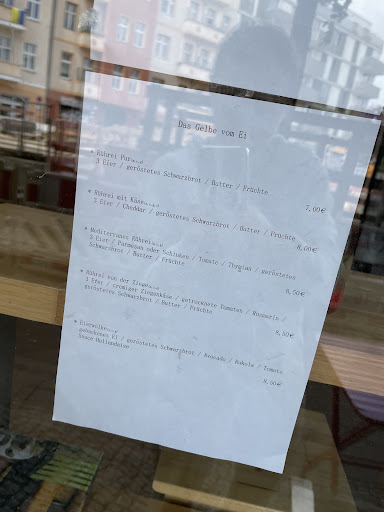 Das Gelbe vom Ei
* Rührei Pur……
3 Eier / geröstetes Schwarzbrot / Butter / Früchte
7,00€
* Rührei mit Käse……
3 Eier / Cheddar / geröstetes Schwarzbrot / Butter / Früchte
8,00€
* Mediterranes Rührei……
3 Eier / Parmesan oder Schinken / Tomate / Thymian / geröstetes
Schwarzbrot / Butter / Früchte
8,50€
* Rührei von der Ziege……
3 Eier / cremiger Ziegenkäse / getrocknete Tomaten / Rosmarin /
geröstetes Schwarzbrot / Butter / Früchte
8,50€
* Eierwolke……
gebackenes Ei / geröstetes Schwarzbrot / Avocado / Rukola / Tomate
Sauce Hollandaise
8,00€